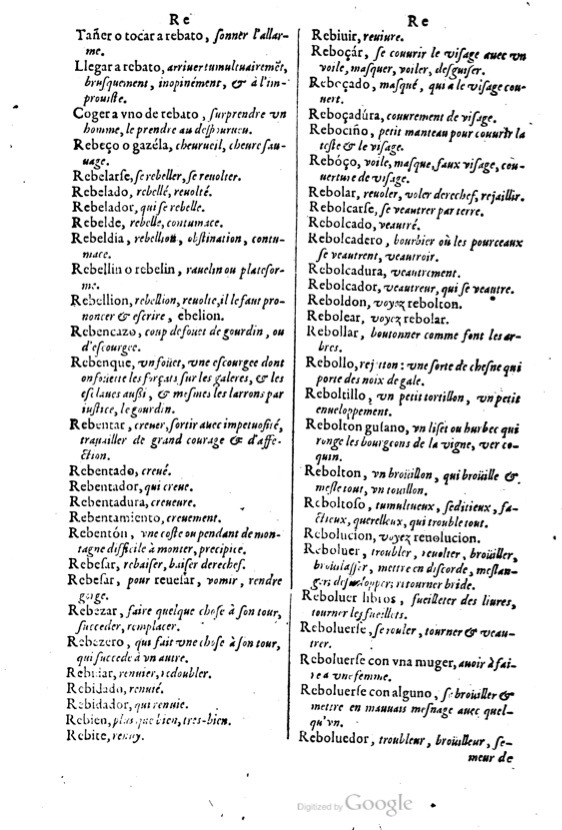 Re
Tañer o tocar a rebato, sonner l'allar-
me.
Llegar a rebato, arriuer tumultuairemēt,
brusquement, inopinément, & à l'im-
prouiste.
Coger a vno de rebato, surprendre vn
homme, le prendre au despourueu.
Rebeço o gazéla, cheureuil, cheure sau-
uage.
Rebelarse, se rebeller, se reuolter.
Rebelado, rebellé, reuolté.
Rebelador, qui se rebelle.
Rebelde, rebelle, contumace.
Rebeldia, rebellion, obstination, contu-
mace.
Rebellin o rebelin, rauelin ou platefor-
me.
Rebellion, rebellion, reuolte, il le faut pro-
noncer & escrire, ebelion.
Rebencazo, coup de fouet de gourdin, ou
d'escourgee.
Rebenque, vn fouët, vne escourgee dont
on fouette les forçats sur les galeres, & les
esclaues aussi, & mesmes les larrons par
iustice, le gourdin.
Rebentar, creuer, sortir auec impetuosité,
trauailler de grand courage & d'affe-
ction.
Rebentado, creué.
Rebentador, qui creue.
Rebentadura, creueure.
Rebentamiento, creuement.
Rebentón, vne coste ou pendant de mon-
tagne difficile à monter, precipice.
Rebesar, rebaiser, baiser derechef.
Rebesar, pour reuesar, vomir, rendre
gorge.
Rebezar, faire quelque chose à son tour,
succeder, remplacer.
Rebezero, qui fait vne chose à son tour,
qui succede à vn autre.
Rebidar, renuier, redoubler.
Rebidado, renuié.
Rebidador, qui renuie.
Rebien, plus que bien, tres-bien.
Rebite, renuy.
Re
Rebiuir, reuiure.
Reboçár, se couurir le visage auec vn
voile, masquer, voiler, desguiser.
Rebeçado, masqué, qui a le visage cou-
uert.
Reboçadúra, couurement de visage.
Rebociño, petit manteau pour couurir la
teste & le visage.
Rebóço, voile, masque, faux visage, cou-
uerture de visage.
Rebolar, reuoler, voler derechef, rejaillir.
Rebolcarse, se veautrer par terre.
Rebolcado, veautré.
Rebolcadero, bourbier où les pourceaux
se veautrent, veautroir.
Rebolcadura, veautrement.
Rebolcador, veautreur, qui se veautre.
Reboldon, voyez rebolton.
Rebolear, voyez rebolar.
Rebollar, boutonner comme font les ar-
bres.
Rebollo, rejetton : vne sorte de chesne qui
porte des noix de gale.
Reboltillo, vn petit tortillon, vn petit
enueloppement.
Rebolton gusano, vn liset ou hurbec qui
ronge les bourgeons de la vigne, ver co-
quin.
Rebolton, vn broüillon, qui broüille &
mesle tout, vn touillon.
Reboltoso, tumultueux, seditieux, fa-
ctieux, querelleux, qui trouble tout.
Rebolucion, voyez reuolucion.
Reboluer, troubler, reuolter, broüiller,
brouillasser, mettre en discorde, meslan-
ger, desuelopper, retourner bride.
Reboluer libros, fueilleter des liures,
tourner les fueillets.
Reboluerse, se rouler, tourner & veau-
trer.
Reboluerse con vna muger, auoir à fai-
re a vne femme.
Reboluerse con alguno, se broüiller &
mettre en mauuais mesnage auec quel-
qu'vn.
Reboluedor, troubleur, broüilleur, se-
meur de
Digitized by Google